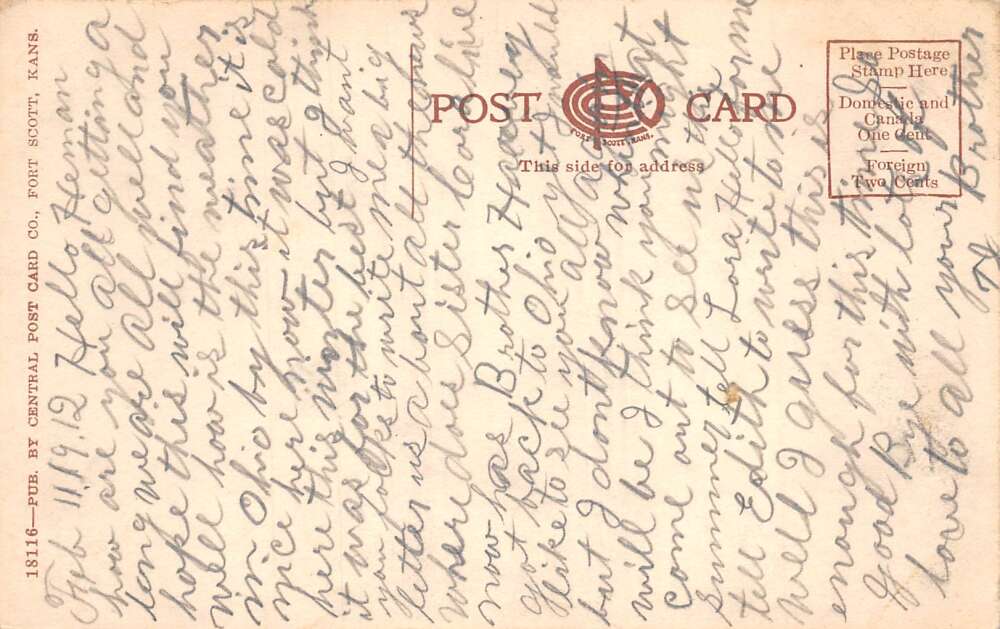 18116—PUB. BY CENTRAL POST CARD CO., FORT SCOTT, KANS.
POST CARD
FORT SCOTT, KANS.
This side for address
Place Postage
Stamp Here
Domestic and
Canada
One Cent
Foreign
Two Cents
Feb 11.1912 Hello Heman
how are you all getting a
long we are all well and
hope this will find you
well how is the weather
in Ohio by this time it is
nice here now it was cold
here this winter but I think
it was for the best I want
you folks to write me a big
letter us about all the news
where does sister Cord live
now has Brother Harvey
got back to Ohio I would
like to see you all
but I dont know when that
will be I think you might
come out to see us in the
summer tell Lora Hello for me
tell Edith to write to me
Well I guess this is
enough for this time So
Good Bye with lots of
love to all your Brother